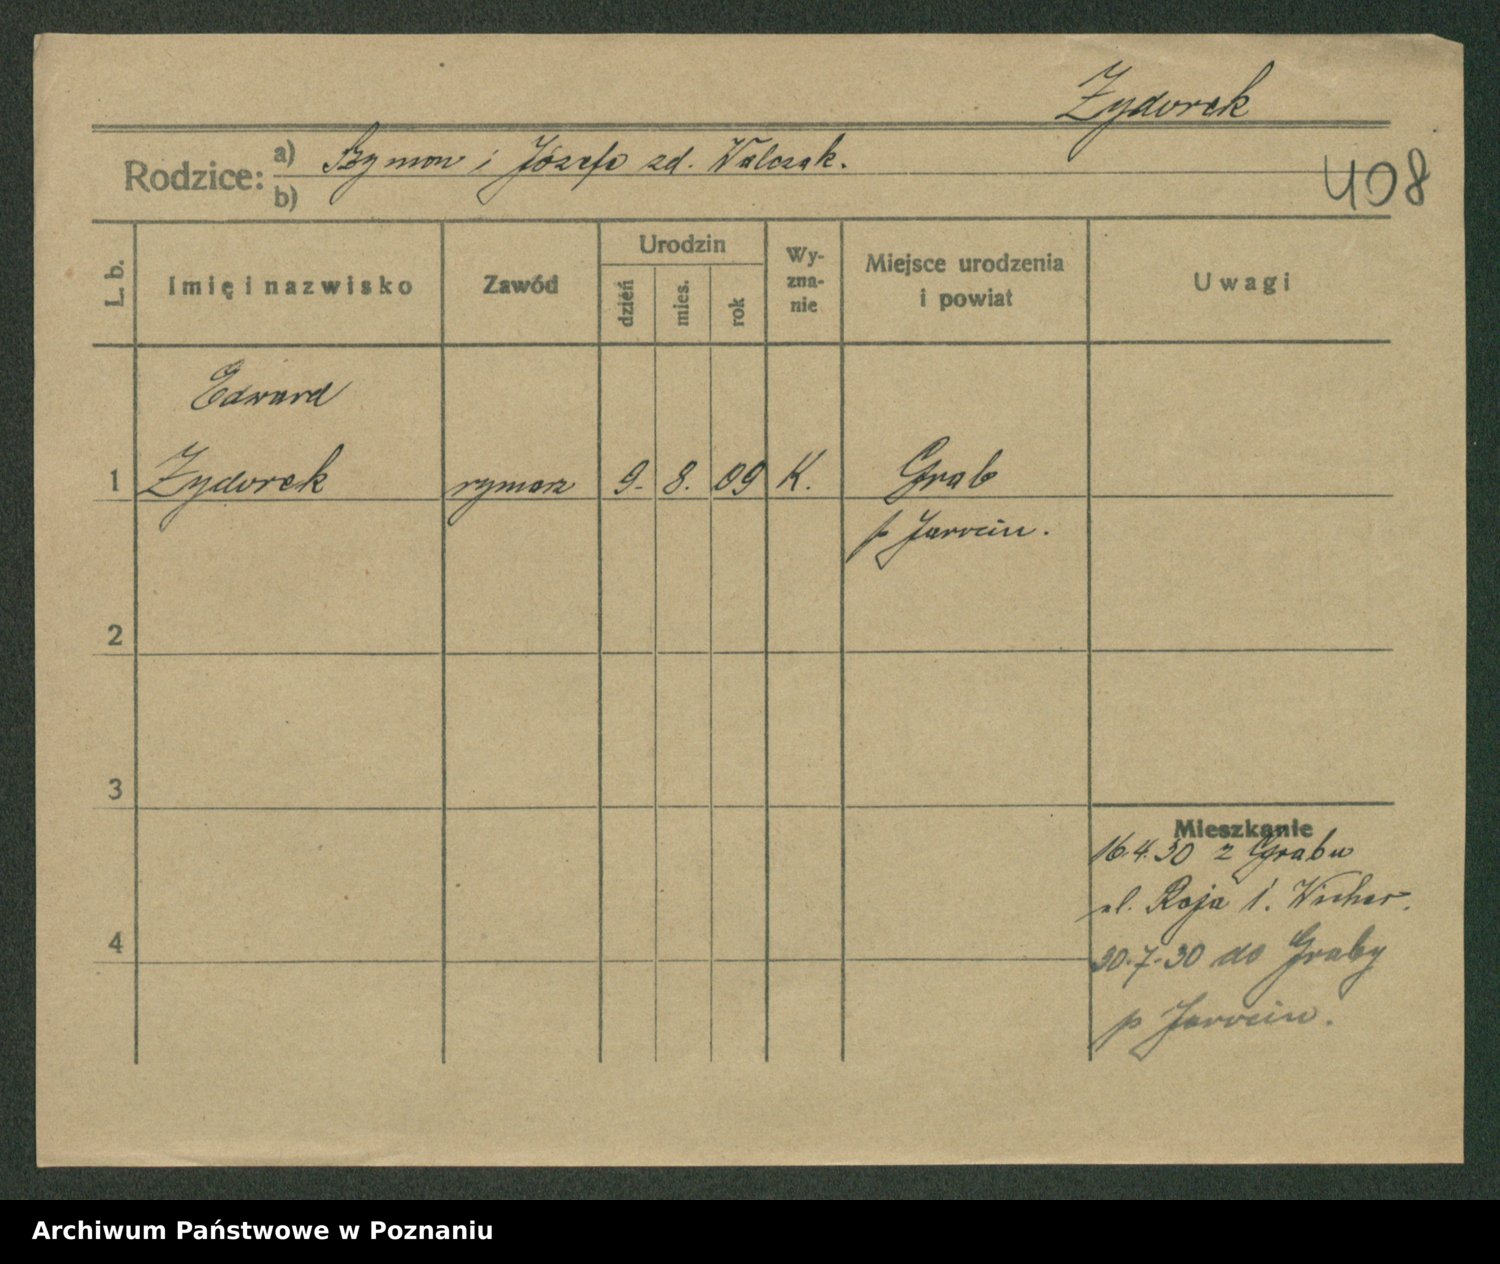 Zydorek
408
Rodzice: a) Szymon i Józefa zd. Walczak.
b)
L. b.
Imię i nazwisko
Zawód
Urodzin
dzień
mies.
rok
Wy-
zna-
nie
Miejsce urodzenia
i powiat
Uwagi
Edward
1 Zydorek rymarz 9. 8. 09 K. Grab
p Jarocin.
2
3
Mieszkanie
16.4.30 z Grabu
ul. Reja 1.
4
30.7.30 do Graby
p Jarocin.
Archiwum Państwowe w Poznaniu